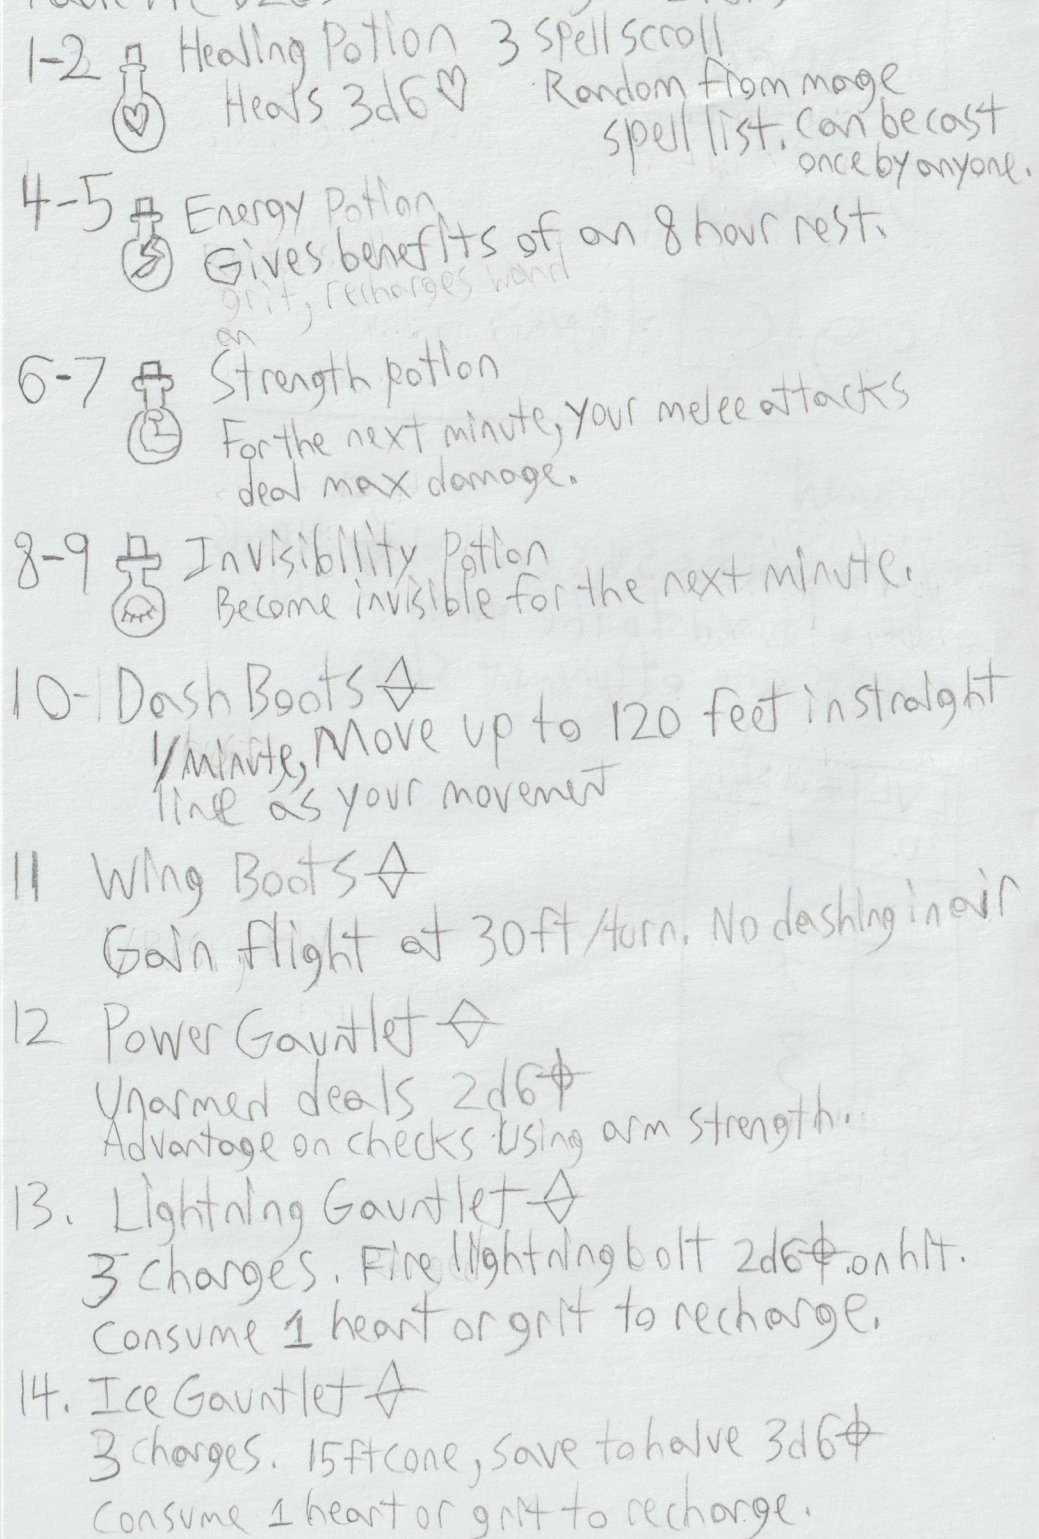 1-2 Healing Potion
Heals 3d6♡
3 spell scroll
Random from mage
spell list. Can be cast
once by anyone.
4-5 Energy Potion
Gives benefits of an 8 hour rest.
grit, recharges wand
on
6-7 Strength potion
For the next minute, your melee attacks
deal max damage.
8-9 Invisibility Potion
Become invisible for the next minute.
10- Dash Boots
1/minute, Move up to 120 feet in straight
line as your movement
11 Wing Boots
Gain flight at 30ft/turn. No dashing in air
12 Power Gauntlet
Unarmed deals 2d6
Advantage on checks using arm strength.
13. Lightning Gauntlet
3 charges. Fire lightning bolt 2d6 on hit.
Consume 1 heart or grit to recharge.
14. Ice Gauntlet
3 charges. 15ft cone, save to halve 3d6
Consume 1 heart or grit to recharge.